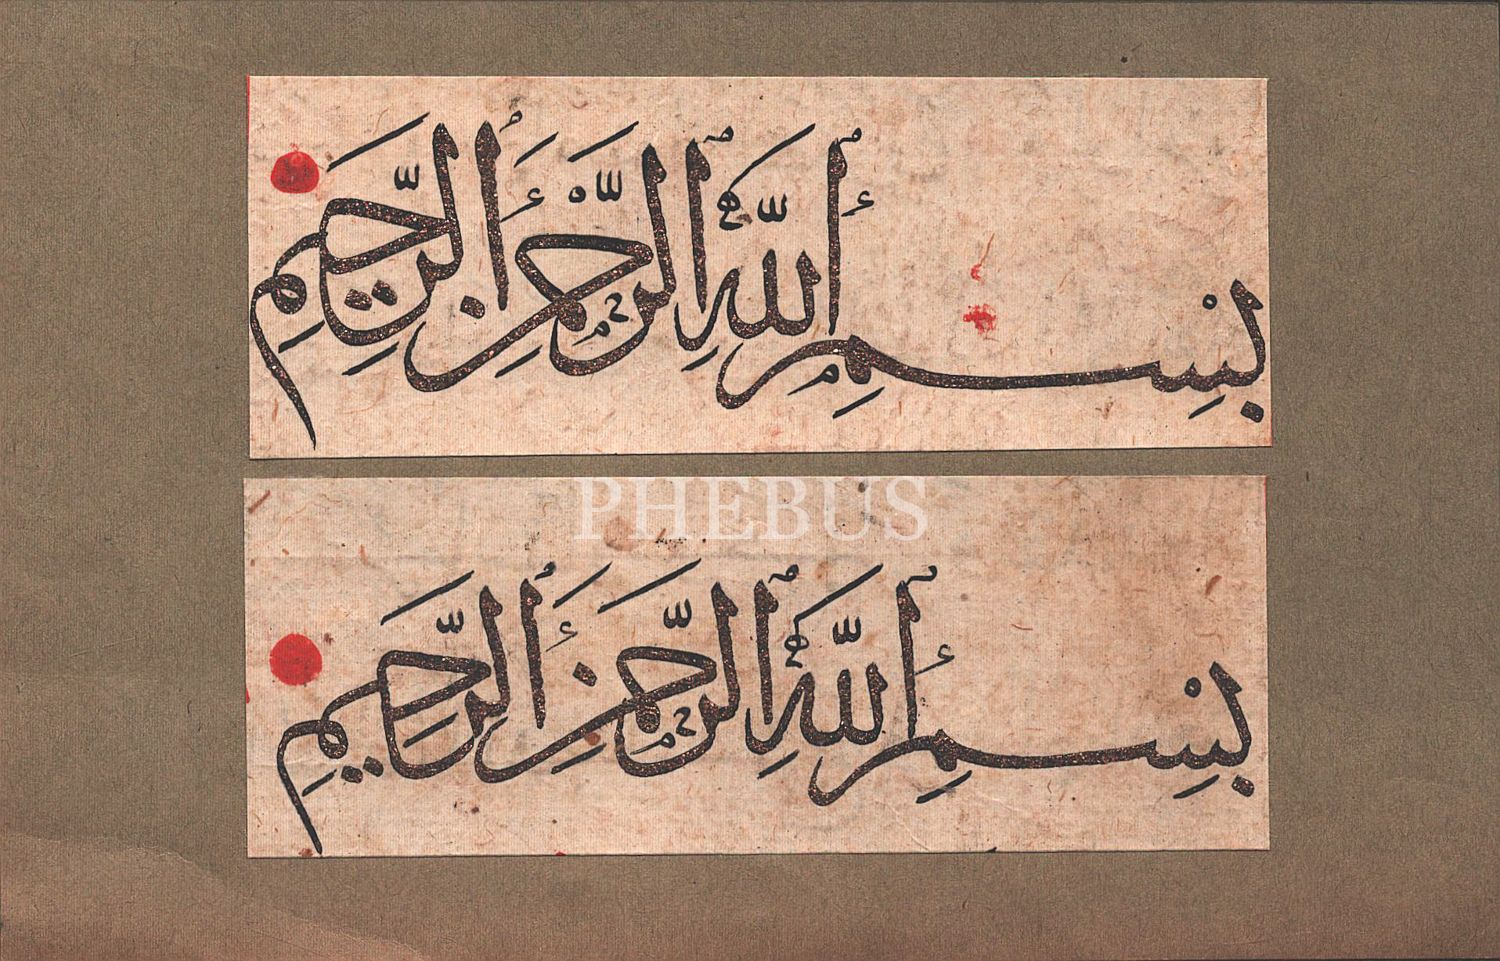 بِسْمِ ٱللَّهِ ٱلرَّحْمٰنِ ٱلرَّحِيمِ
PHEBUS
بِسْمِ ٱللَّهِ ٱلرَّحْمٰنِ ٱلرَّحِيمِ